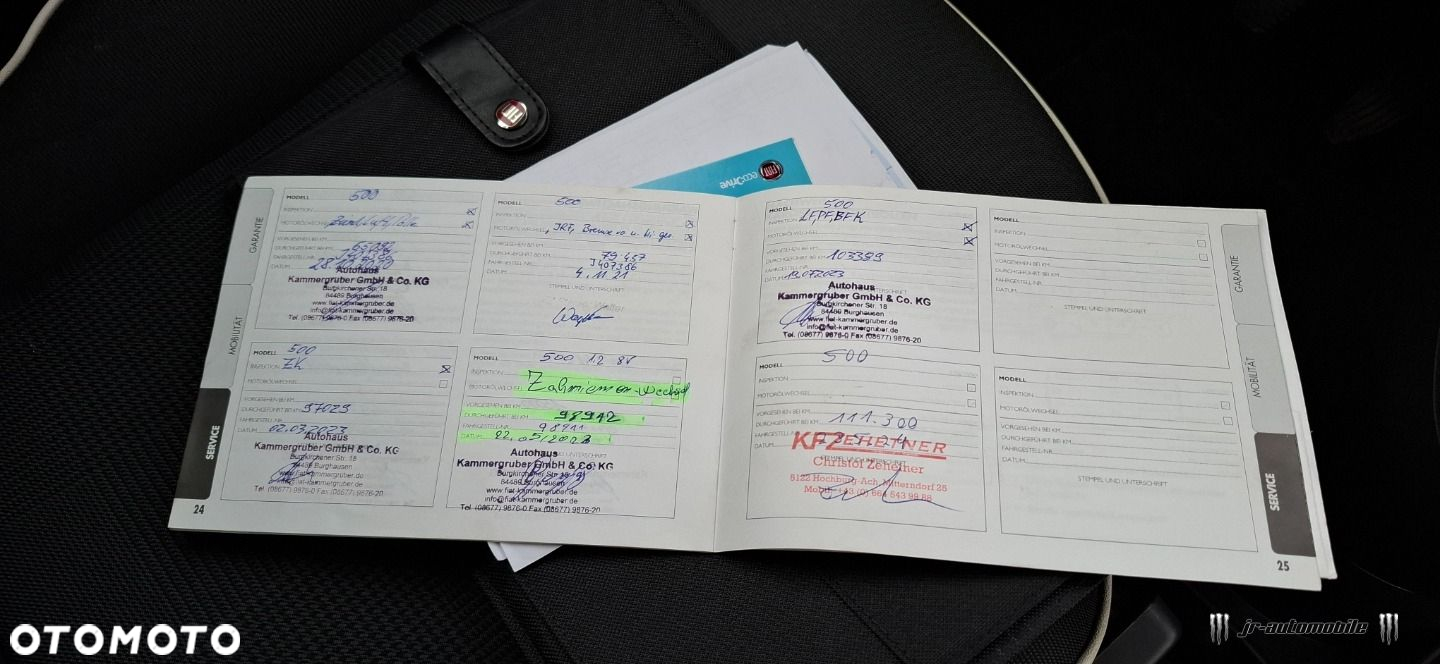 FIAT
ecoDrive
GARANTIE
MOBILITÄT
SERVICE
24
MODELL 500
INSPEKTION
MOTORÖLWECHSEL
VORGESEHEN BEI KM
DURCHGEFÜHRT BEI KM
FAHRGESTELL-NR.
DATUM
Autohaus
Kammergruber GmbH & Co. KG
Burgkirchener Str. 18
84489 Burghausen
www.fiat-kammergruber.de
info@fiat-kammergruber.de
Tel. (08677) 9876-0 Fax (08677) 9876-20
MODELL 500
INSPEKTION
MOTORÖLWECHSEL
VORGESEHEN BEI KM
DURCHGEFÜHRT BEI KM 79 457
FAHRGESTELL-NR. J407386
DATUM 4.11.21
STEMPEL UND UNTERSCHRIFT
MODELL 500
INSPEKTION ZK
MOTORÖLWECHSEL
VORGESEHEN BEI KM
DURCHGEFÜHRT BEI KM 97029
FAHRGESTELL-NR.
DATUM 02.03.2023
Autohaus
Kammergruber GmbH & Co. KG
Burgkirchener Str. 18
84489 Burghausen
www.fiat-kammergruber.de
info@fiat-kammergruber.de
Tel. (08677) 9876-0 Fax (08677) 9876-20
MODELL 500 1.2 8V
INSPEKTION Zahnriemen-Wechsel
MOTORÖLWECHSEL
VORGESEHEN BEI KM
DURCHGEFÜHRT BEI KM 98912
FAHRGESTELL-NR. 98911
DATUM 22.05/2023
STEMPEL UND UNTERSCHRIFT
Autohaus
Kammergruber GmbH & Co. KG
Burgkirchener Str. 18
84489 Burghausen
www.fiat-kammergruber.de
info@fiat-kammergruber.de
Tel. (08677) 9876-0 Fax (08677) 9876-20
MODELL 500
INSPEKTION LF, PF, BFK
MOTORÖLWECHSEL
VORGESEHEN BEI KM
DURCHGEFÜHRT BEI KM 103399
FAHRGESTELL-NR.
DATUM 19.07.2023
Autohaus
Kammergruber GmbH & Co. KG
Burgkirchener Str. 18
84489 Burghausen
www.fiat-kammergruber.de
info@fiat-kammergruber.de
Tel. (08677) 9876-0 Fax (08677) 9876-20
MODELL 500
INSPEKTION
MOTORÖLWECHSEL
VORGESEHEN BEI KM
DURCHGEFÜHRT BEI KM 111.300
FAHRGESTELL-NR.
DATUM
KFZ ZEHETNER
STEMPEL UND UNTERSCHRIFT
Christof Zehetner
5122 Hochburg-Ach, Mitterndorf 25
Mobil: +43 (0) 664 543 99 88
MODELL
INSPEKTION
MOTORÖLWECHSEL
VORGESEHEN BEI KM
DURCHGEFÜHRT BEI KM
FAHRGESTELL-NR.
DATUM
STEMPEL UND UNTERSCHRIFT
MODELL
INSPEKTION
MOTORÖLWECHSEL
VORGESEHEN BEI KM
DURCHGEFÜHRT BEI KM
FAHRGESTELL-NR.
DATUM
STEMPEL UND UNTERSCHRIFT
GARANTIE
MOBILITÄT
SERVICE
25
OTOMOTO
jr-automobile